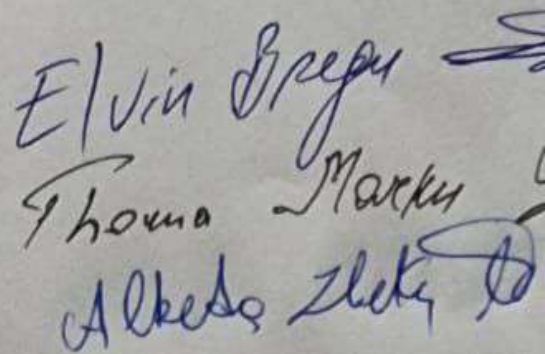 Elvin Bregu
Thoma Marku
Alketa